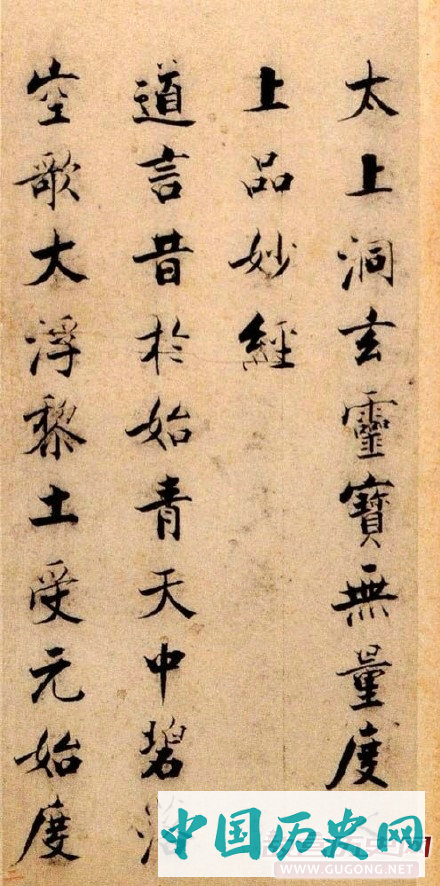 太上洞玄靈寶無量度
上品妙經
道言昔於始青天中碧
空歌大浮黎土受元始度
中国历史网
WWW.GUGONG.NET